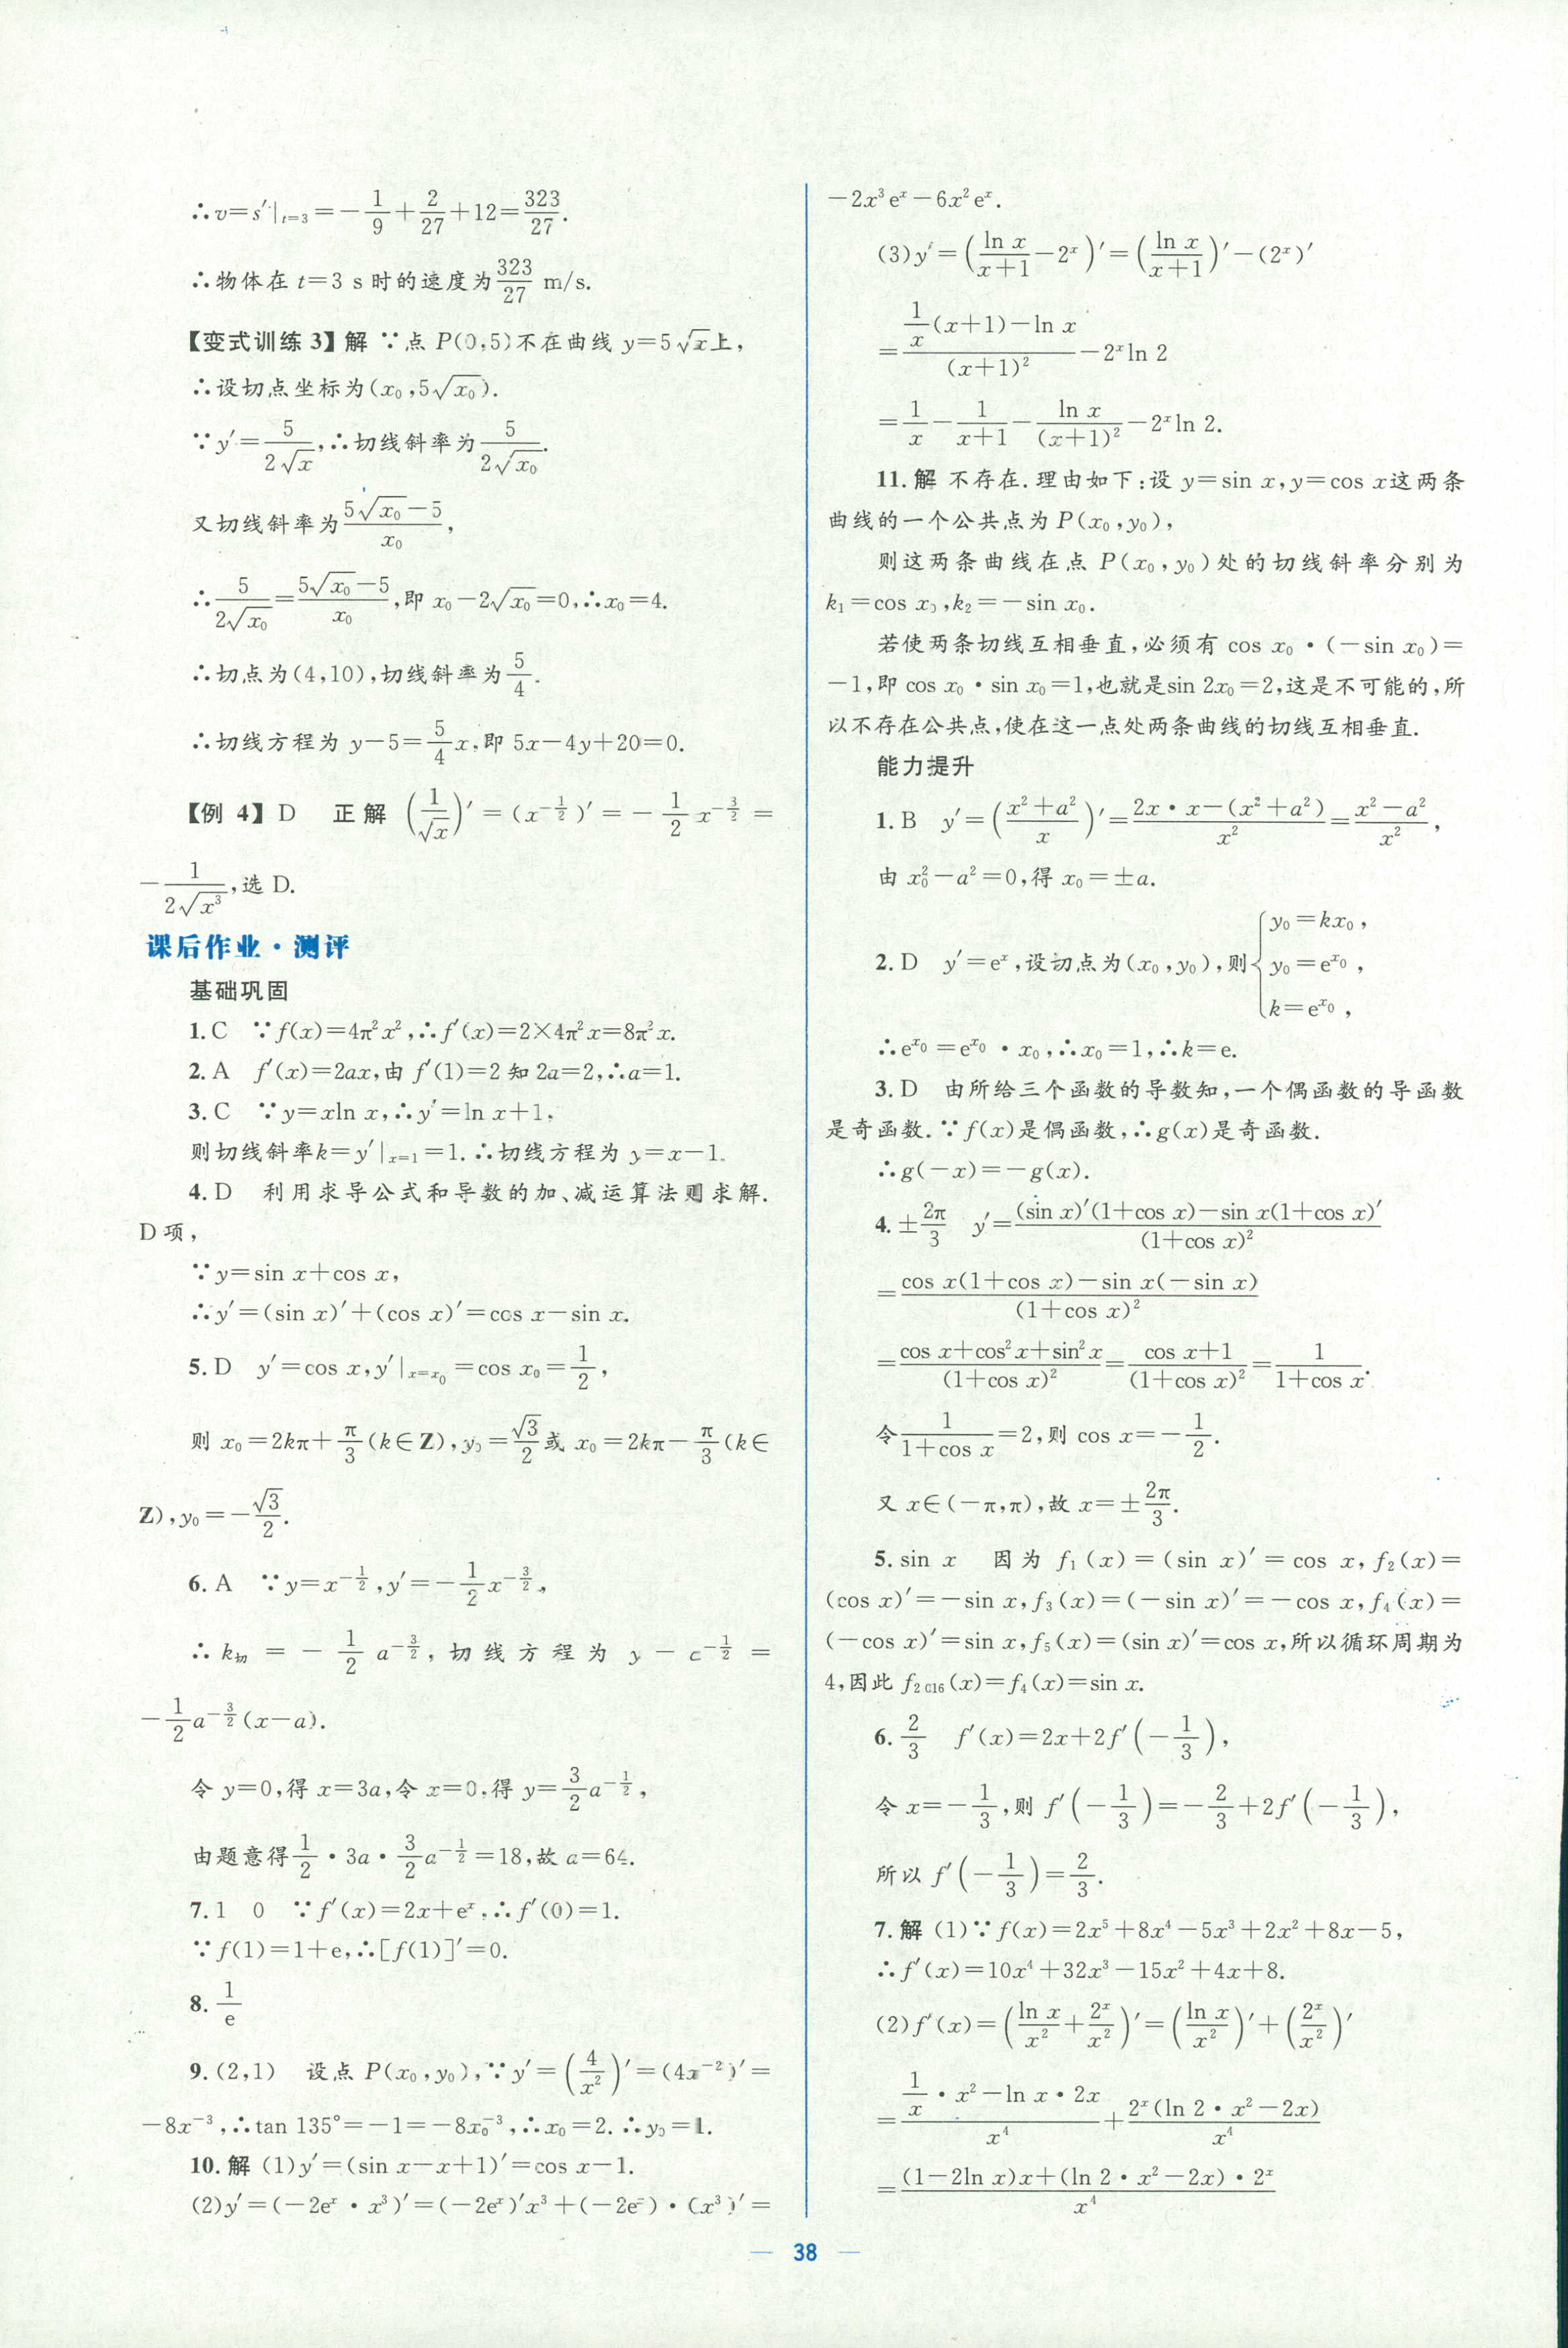 ∴v=s′|ₜ₌₃=−1/9+2/27+12=323/27.
∴物体在 t=3 s 时的速度为323/27 m/s.
【变式训练 3】解 ∵点 P(0,5)不在曲线 y=5√x上,
∴设切点坐标为(x₀,5√x₀).
∵y′=5/(2√x),∴切线斜率为5/(2√x₀).
又切线斜率为(5√x₀−5)/x₀,
∴5/(2√x₀)=(5√x₀−5)/x₀,即 x₀−2√x₀=0,∴x₀=4.
∴切点为(4,10),切线斜率为5/4.
∴切线方程为 y−5=5/4x,即 5x−4y+20=0.
【例 4】D 正解 (1/√x)′=(x^(−1/2))′=−1/2x^(−3/2)=
−1/(2√x³),选 D.
课后作业·测评
基础巩固
1.C ∵f(x)=4π²x²,∴f′(x)=2×4π²x=8π²x.
2.A f′(x)=2ax,由 f′(1)=2 知 2a=2,∴a=1.
3.C ∵y=xln x,∴y′=ln x+1,
则切线斜率k=y′|ₓ₌₁=1.∴切线方程为 y=x−1.
4.D 利用求导公式和导数的加、减运算法则求解.
D 项,
∵y=sin x+cos x,
∴y′=(sin x)′+(cos x)′=cos x−sin x.
5.D y′=cos x,y′|ₓ₌ₓ₀=cos x₀=1/2,
则 x₀=2kπ+π/3(k∈Z),y₀=√3/2或 x₀=2kπ−π/3(k∈
Z),y₀=−√3/2.
6.A ∵y=x^(−1/2),y′=−1/2x^(−3/2),
∴k切=−1/2a^(−3/2),切线方程为 y−a^(−1/2)=
−1/2a^(−3/2)(x−a).
令 y=0,得 x=3a,令 x=0,得 y=3/2a^(−1/2),
由题意得1/2·3a·3/2a^(−1/2)=18,故 a=64.
7.1 0 ∵f′(x)=2x+eˣ,∴f′(0)=1.
∵f(1)=1+e,∴[f(1)]′=0.
8.1/e
9.(2,1) 设点 P(x₀,y₀),∵y′=(4/x²)′=(4x⁻²)′=
−8x⁻³,∴tan 135°=−1=−8x₀⁻³,∴x₀=2.∴y₀=1.
10.解 (1)y′=(sin x−x+1)′=cos x−1.
(2)y′=(−2eˣ·x³)′=(−2eˣ)′x³+(−2eˣ)·(x³)′=
−2x³eˣ−6x²eˣ.
(3)y′=(ln x/(x+1)−2ˣ)′=(ln x/(x+1))′−(2ˣ)′
=(1/x(x+1)−ln x)/(x+1)²−2ˣln 2
=1/x−1/(x+1)−ln x/(x+1)²−2ˣln 2.
11.解 不存在.理由如下:设 y=sin x,y=cos x这两条
曲线的一个公共点为 P(x₀,y₀),
则这两条曲线在点 P(x₀,y₀)处的切线斜率分别为
k₁=cos x₀,k₂=−sin x₀.
若使两条切线互相垂直,必须有 cos x₀·(−sin x₀)=
−1,即 cos x₀·sin x₀=1,也就是sin 2x₀=2,这是不可能的,所
以不存在公共点,使在这一点处两条曲线的切线互相垂直.
能力提升
1.B y′=((x²+a²)/x)′=(2x·x−(x²+a²))/x²=(x²−a²)/x²,
由 x₀²−a²=0,得 x₀=±a.
2.D y′=eˣ,设切点为(x₀,y₀),则{y₀=kx₀, y₀=e^(x₀), k=e^(x₀),
∴e^(x₀)=e^(x₀)·x₀,∴x₀=1,∴k=e.
3.D 由所给三个函数的导数知,一个偶函数的导函数
是奇函数.∵f(x)是偶函数,∴g(x)是奇函数.
∴g(−x)=−g(x).
4.±2π/3 y′=((sin x)′(1+cos x)−sin x(1+cos x)′)/(1+cos x)²
=(cos x(1+cos x)−sin x(−sin x))/(1+cos x)²
=(cos x+cos²x+sin²x)/(1+cos x)²=(cos x+1)/(1+cos x)²=1/(1+cos x).
令1/(1+cos x)=2,则 cos x=−1/2.
又 x∈(−π,π),故 x=±2π/3.
5.sin x 因为 f₁(x)=(sin x)′=cos x,f₂(x)=
(cos x)′=−sin x,f₃(x)=(−sin x)′=−cos x,f₄(x)=
(−cos x)′=sin x,f₅(x)=(sin x)′=cos x,所以循环周期为
4,因此 f₂ ₀₁₆(x)=f₄(x)=sin x.
6.2/3 f′(x)=2x+2f′(−1/3),
令 x=−1/3,则 f′(−1/3)=−2/3+2f′(−1/3),
所以 f′(−1/3)=2/3.
7.解 (1)∵f(x)=2x⁵+8x⁴−5x³+2x²+8x−5,
∴f′(x)=10x⁴+32x³−15x²+4x+8.
(2)f′(x)=(ln x/x²+2ˣ/x²)′=(ln x/x²)′+(2ˣ/x²)′
=(1/x·x²−ln x·2x)/x⁴+2ˣ(ln 2·x²−2x)/x⁴
=((1−2ln x)x+(ln 2·x²−2x)·2ˣ)/x⁴
38